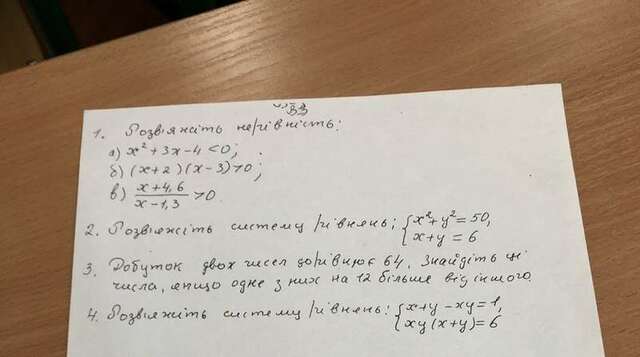 В3
1. Розв'яжіть нерівність:
а) x² + 3x - 4 < 0;
б) (x+2)(x-3) > 0;
в) (x+4,6)/(x-1,3) > 0.
2. Розв'яжіть систему рівнянь: { x² + y² = 50, x + y = 6
3. Добуток двох чисел дорівнює 64. Знайдіть ці
числа, якщо одне з них на 12 більше від іншого.
4. Розв'яжіть систему рівнянь: { x + y - xy = 1, xy(x+y) = 6